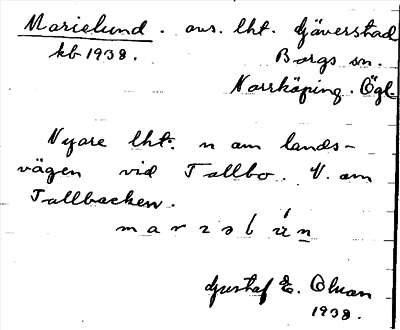 Marielund. avs. lht. Gäverstad
kb 1938. Borgs sn.
Norrköping. Ögl.
Nyare lht. n am lands-
vägen vid Tallbo. V. am
Tallbacken.
Gustaf E. Olson
1938.